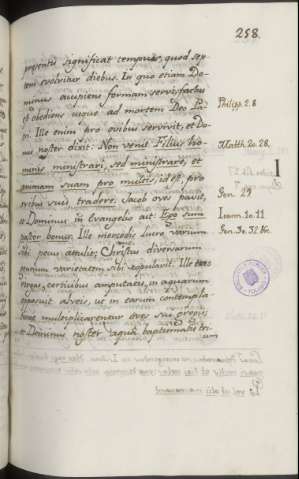 258.
presentis significat tempus, quod sep
tem evolvitur diebus. In quo etiam Do
minus accipiens formam servi, factus
est obediens usque ad mortem Deo Pa
tri. Ille enim pro ovibus servivit, et Do
minus noster dixit: Non venit Filius ho
minis ministrari, sed ministrare, et
animam suam pro multis, id est, pro
ovibus suis tradere. Jacob oves pavit,
et Dominus in Evangelio ait: Ego sum
pastor bonus. Ille mercedis lucro varium
sibi pecus attulit; Christus diversarum
gentium varietatem sibi
Ille tres
virgas, corticibus amputatis, in aquarum
alveis, ut in earum contempla
tione multiplicarentur oves suæ
et Dominus noster in aquæ baptismatis tri
um
Philipp. 2. 8
Matth. 20. 28.
Gen. 29
Ioann. 10. 11
Gen. 30. 32